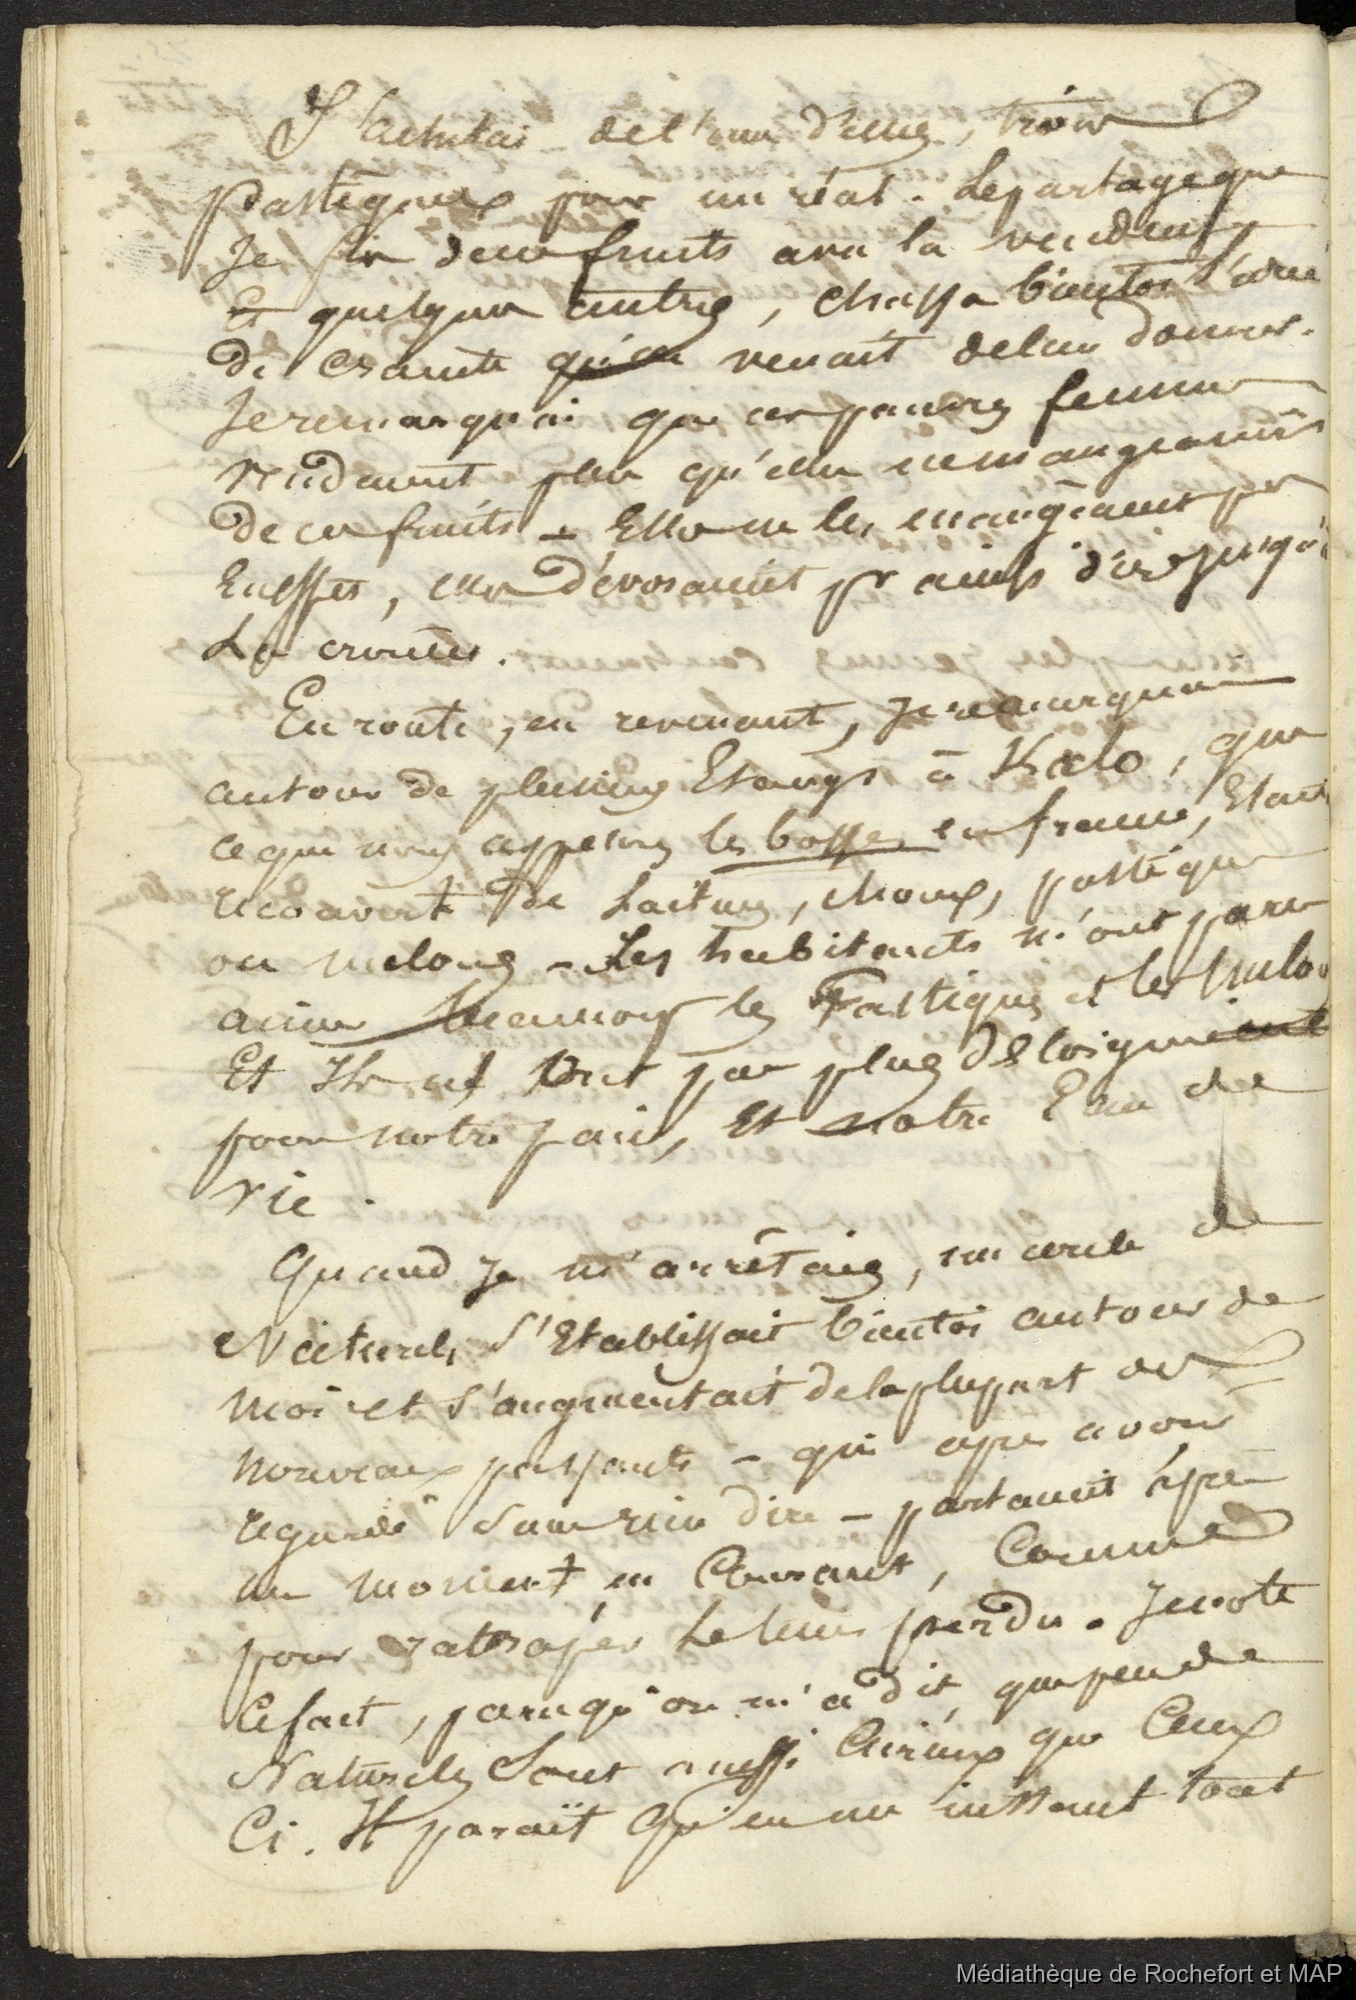 J'achetai de l'une d'elles, trois
pastèques pour un réal. Le partage que
Je fis de ces fruits avec la vendeuse
Et quelques autres, chassa bientôt l'idée
de crainte qu'on venait de leur donner.
Je remarquai que ces pauvres femmes
vendaient plus qu'elles ne mangeaient
de ces fruits - Elles ne les mangeaient pas
En effet, elles dévoraient pr ainsi dire jusqu'à
La croûte.
En route, en revenant, Je remarquai
autour de plusieurs Etangs à Kalo, que
ce que nous appelons les bosses en france, Etait
recouvert de Laitues, choux, pastèques
ou melons - Les habitants n'ont paru
aimer beaucoup les Pastèques et les melons
Et Ils n'ont pas plus d'Eloignement
pour notre pain, Et notre Eau de
vie.
Quand Je m'arrêtais, un cercle de
Naturels s'Etablissait bientôt autour de
moi et s'augmentait de la plupart des
nouveaux passants - qui après avoir
regardé sans rien dire - partaient après
un moment en Courant, Comme
pour rattraper Le tems perdu. Je note
Ce fait, parcequ'on m'a dit, que peu de
Naturels Sont aussi Curieux que Ceux
Ci. Il paraît qu'en un instant tout
Médiathèque de Rochefort et MAP